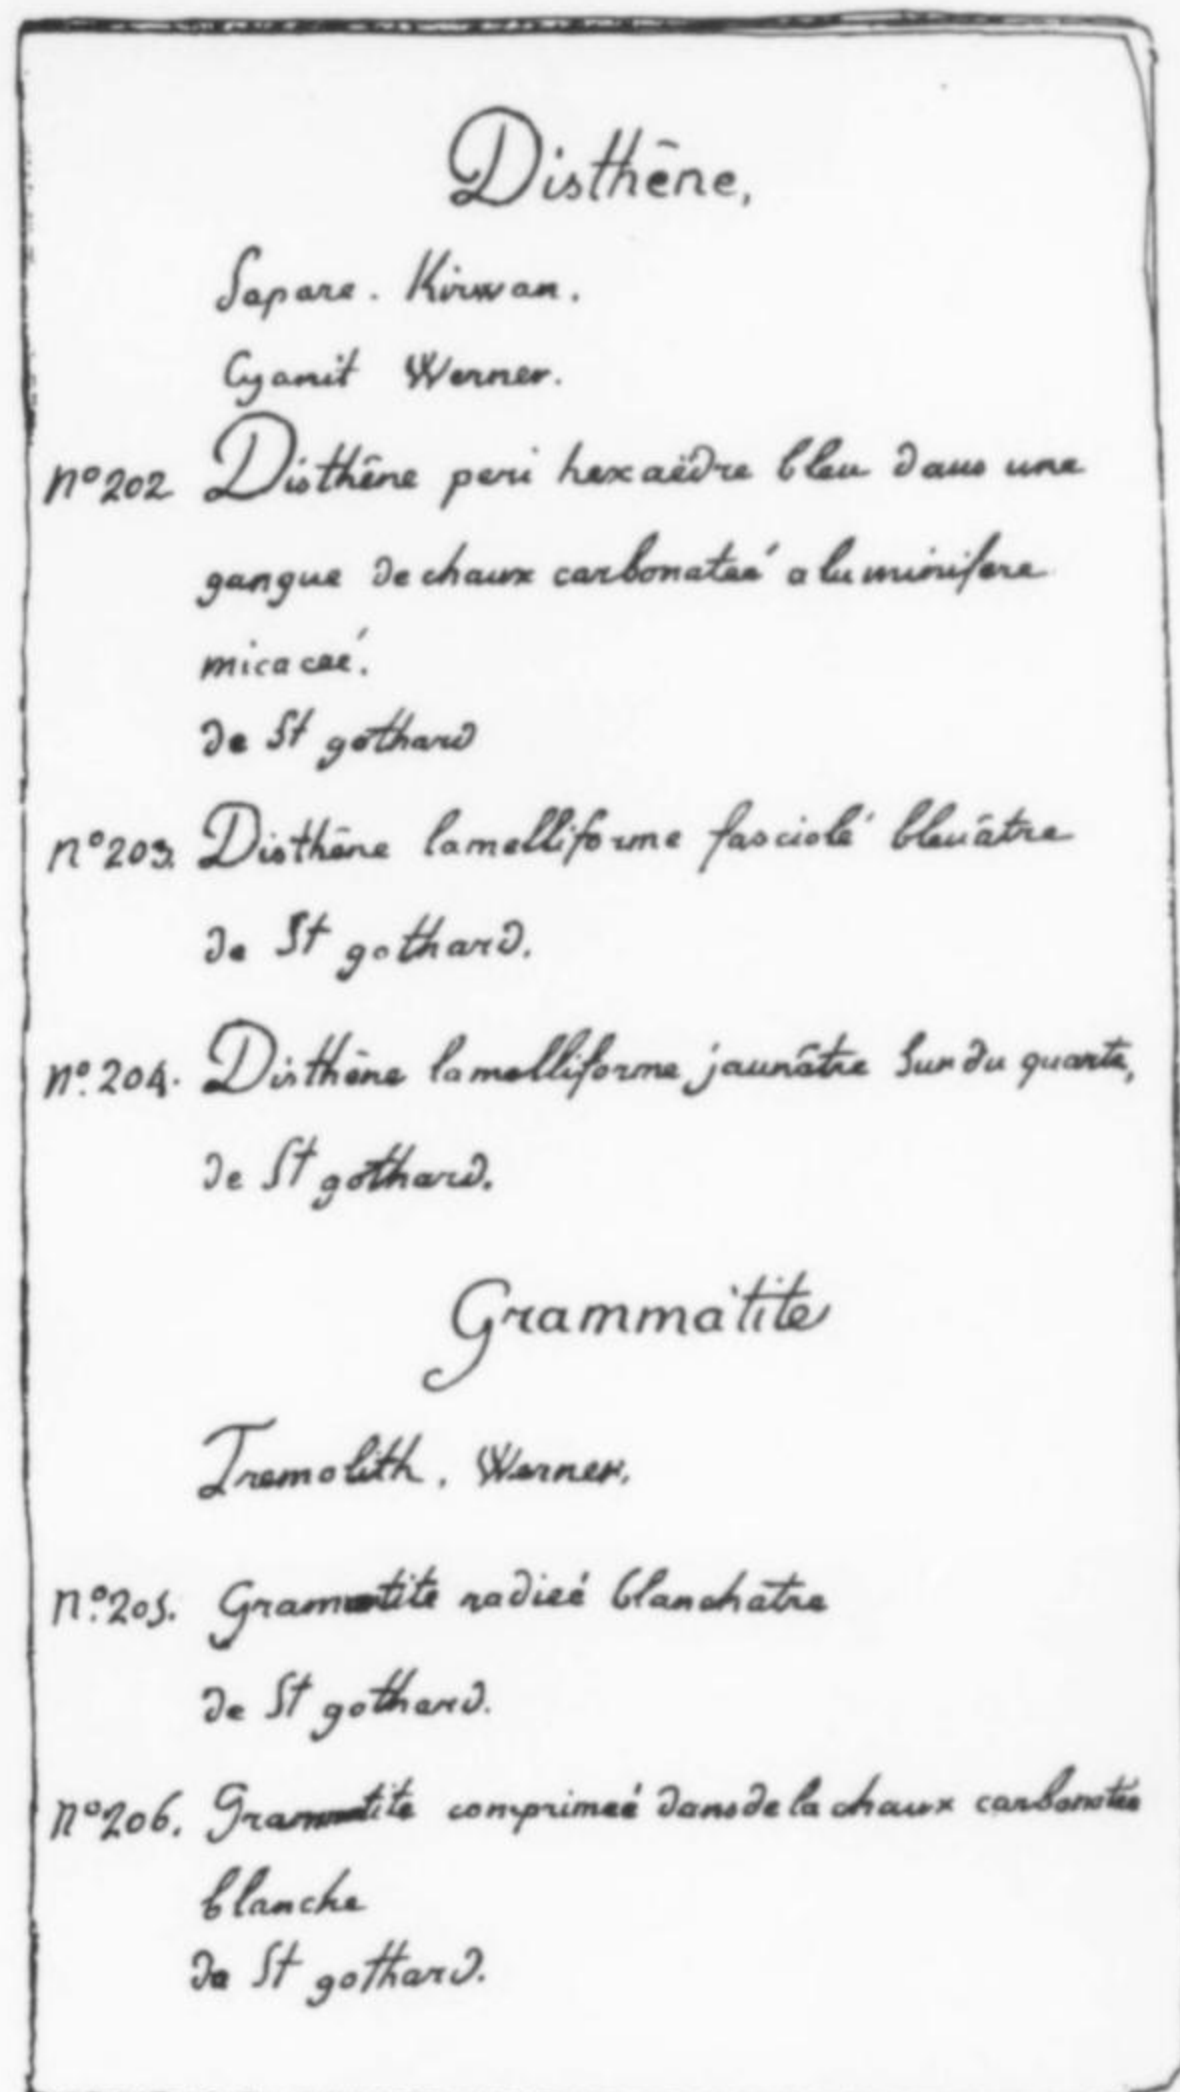 Disthêne,
Sapare. Kirwan.
Cyanit Werner.
n° 202 Disthêne peri hexaëdre bleu dans une
gangue de chaux carbonateé aluminifere
micaceé.
de St gothard
n° 203. Disthêne lamelliforme fasciolé bleuâtre
de St gothard.
n°. 204. Disthêne lamelliforme jaunâtre Sur du quartz,
de St gothard.
Grammatite
Tremolith. Werner.
n°. 205. Grammatite radieé blanchatre
de St gothard.
n° 206. Grammatite comprimeé dans de la chaux carbonatée
blanche
de St gothard.